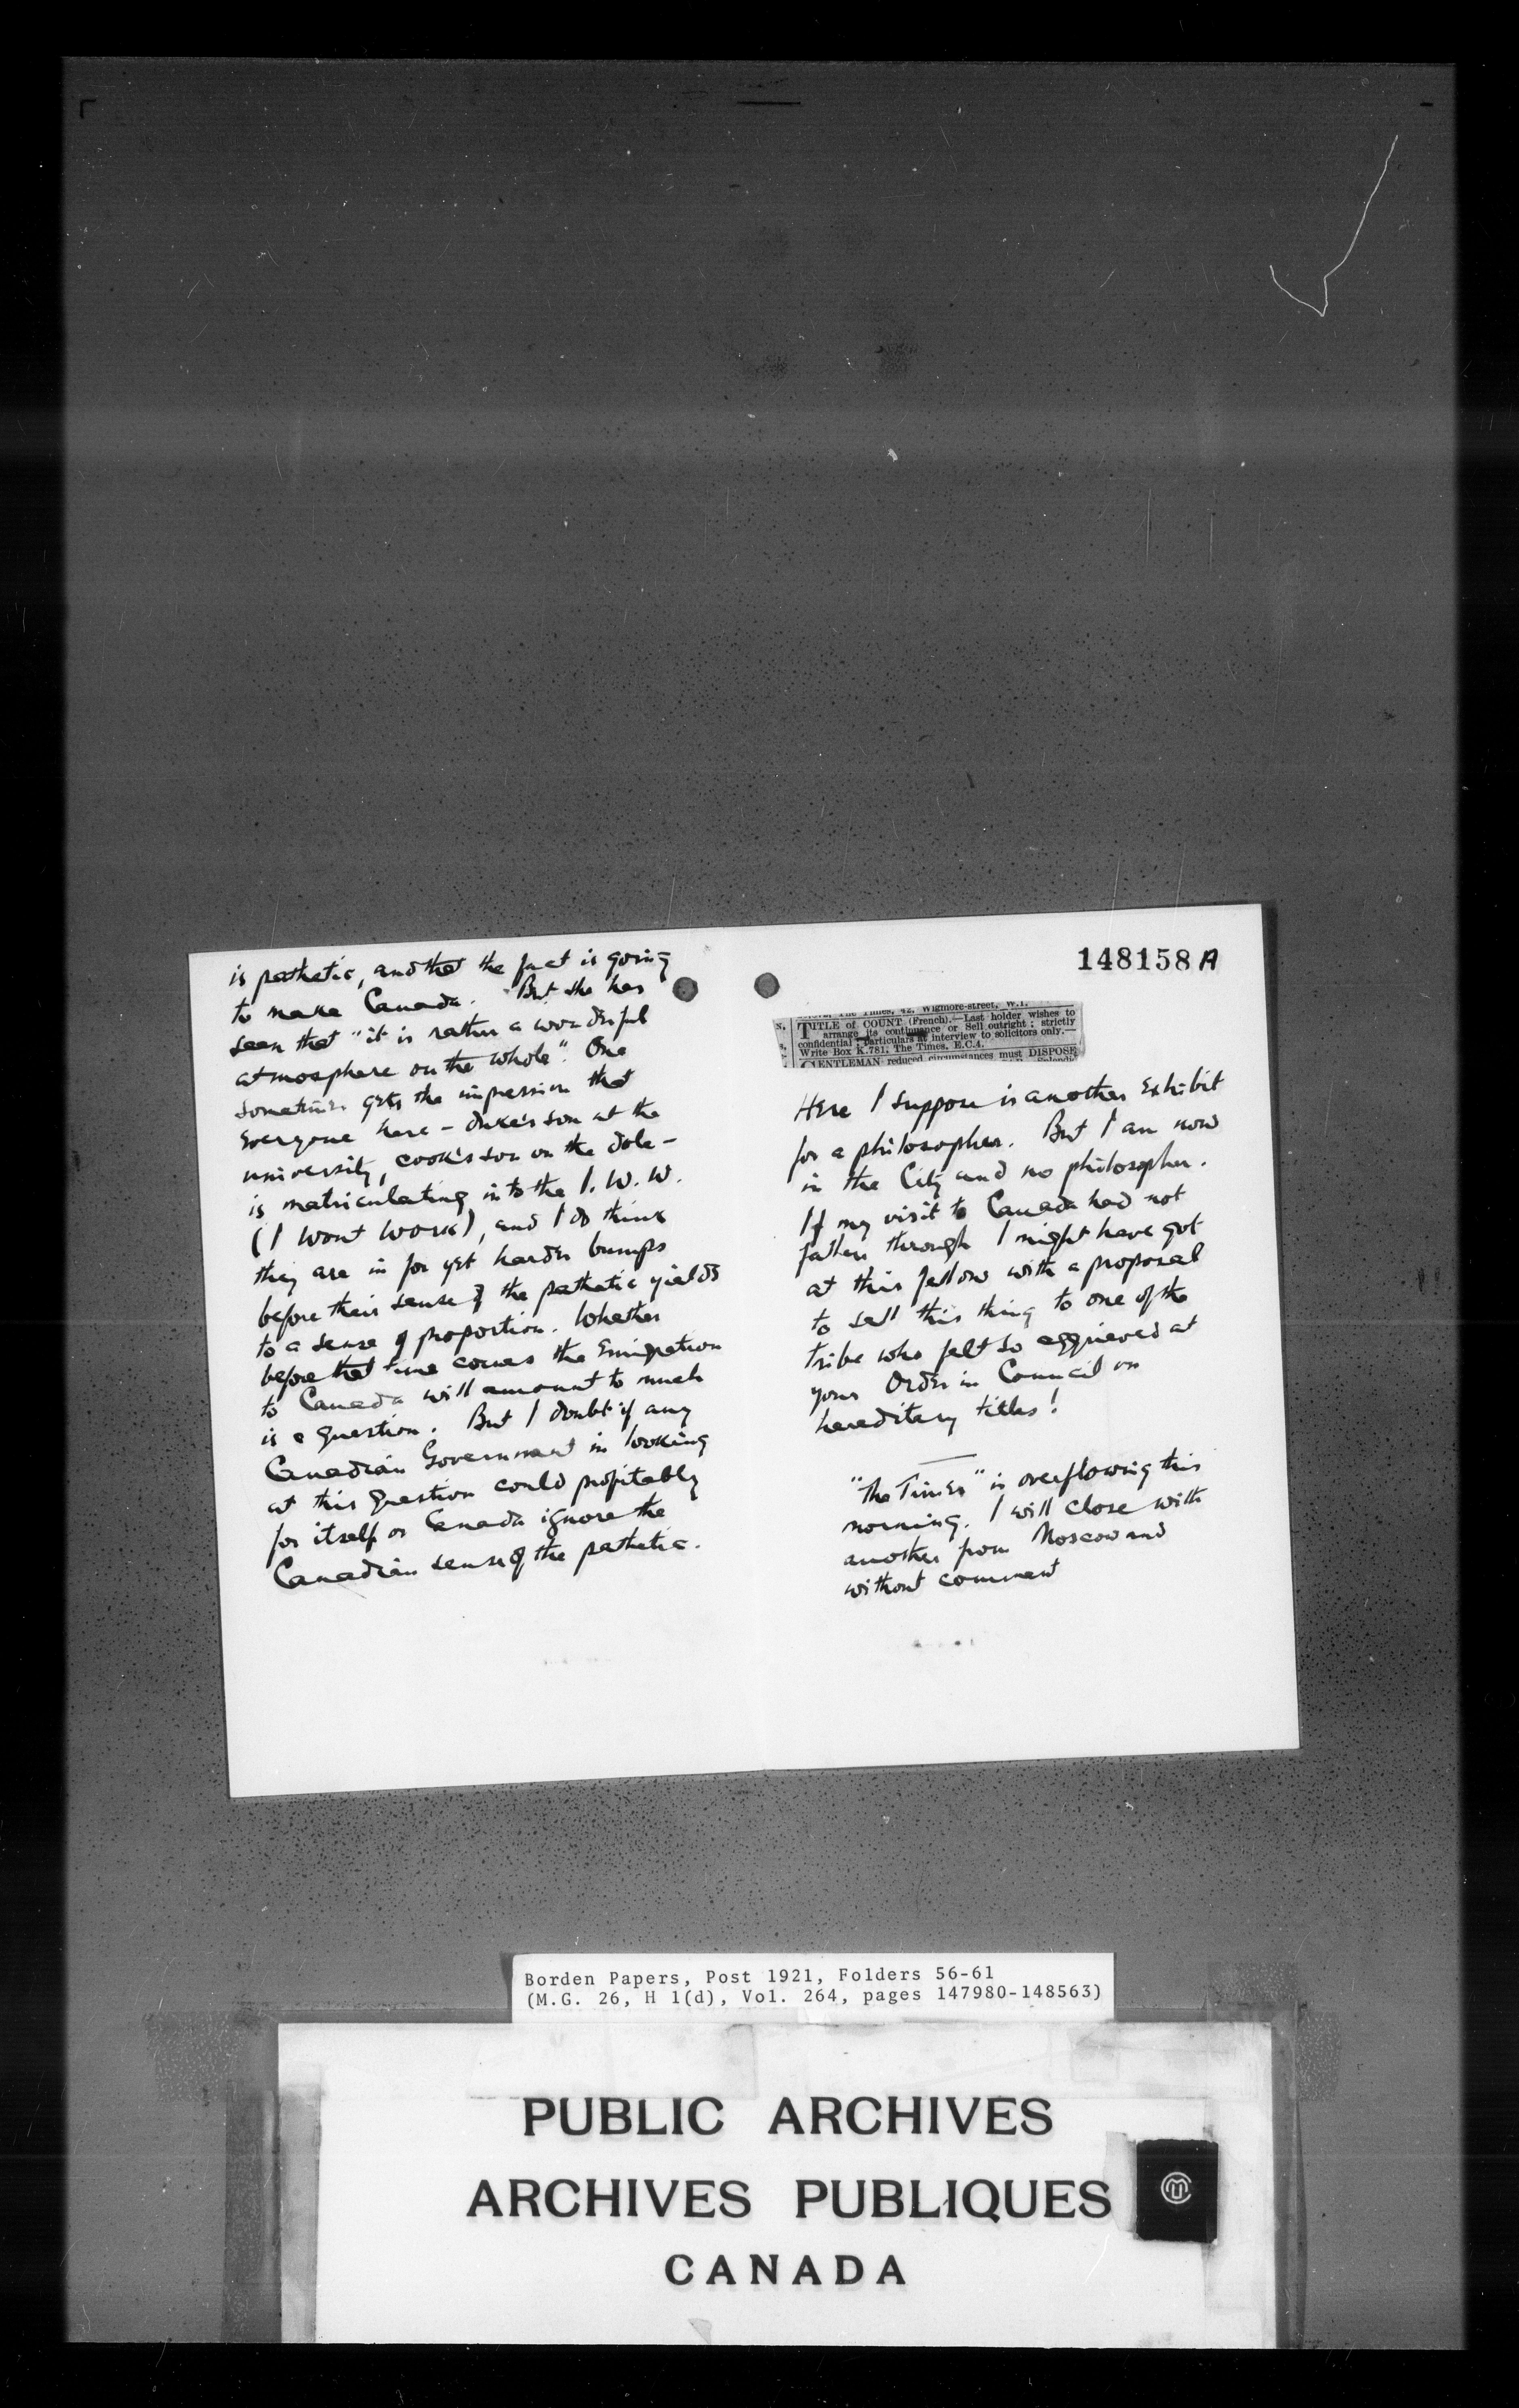 is pathetic, and that the fact is going
to make Canada. But she has
seen that "it is rather a wonderful
atmosphere on the whole". One
sometimes gets the impression that
everyone here - duke's son at the
university, cook's son on the dole -
is matriculating into the I.W.W.
(I Wont Work), and I do think
they are in for yet harder bumps
before their sense of the pathetic yields
to a sense of proportion. Whether
before that time comes the Emigration
to Canada will amount to much
is a question. But I doubt if any
Canadian Government in looking
at this question could profitably
for itself or Canada ignore the
Canadian sense of the pathetic.
148158 A
The Times, 42, Wigmore-street, W.1.
TITLE of COUNT (French).—Last holder wishes to
arrange its continuance or Sell outright; strictly
confidential; particulars at interview to solicitors only.—
Write Box K.781, The Times, E.C.4.
GENTLEMAN reduced circumstances must DISPOSE
Here I suppose is another Exhibit
for a philosopher. But I am now
in the City and no philosopher.
If my visit to Canada had not
fallen through I might have got
at this fellow with a proposal
to sell this thing to one of the
tribe who felt so aggrieved at
your Order in Council on
hereditary titles!
"The Times" is overflowing this
morning. I will close with
another from Moscow and
without comment
Borden Papers, Post 1921, Folders 56-61
(M.G. 26, H 1(d), Vol. 264, pages 147980-148563)
PUBLIC ARCHIVES
ARCHIVES PUBLIQUES
CANADA